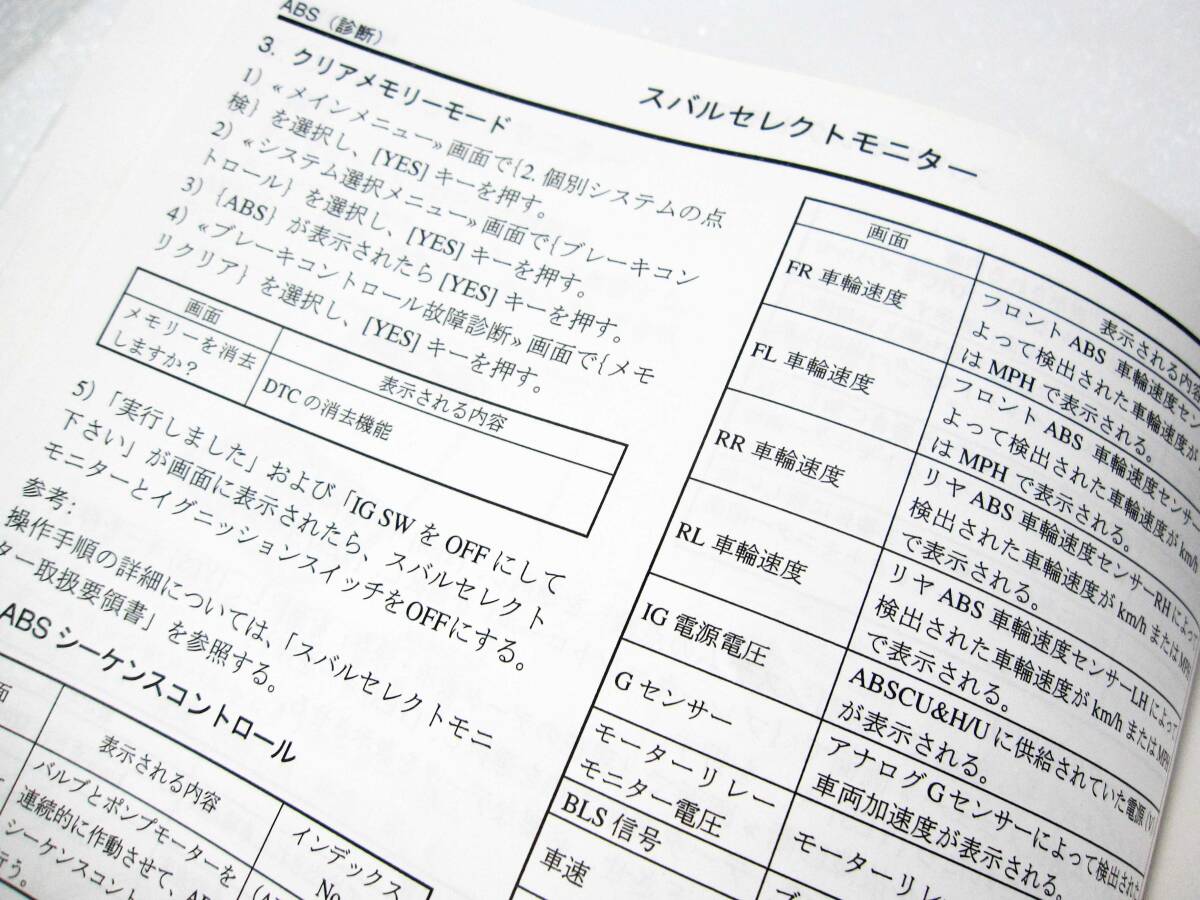 ABS（診断）
スバルセレクトモニター
3. クリアメモリーモード
1) «メインメニュー» 画面で{2. 個別システムの点
検} を選択し、[YES] キーを押す。
2) «システム選択メニュー» 画面で{ブレーキコン
トロール} を選択し、[YES] キーを押す。
3) {ABS} が表示されたら [YES] キーを押す。
4) «ブレーキコントロール故障診断» 画面で{メモ
リクリア} を選択し、[YES] キーを押す。
画面
表示される内容
メモリーを消去
しますか?
DTC の消去機能
5) 「実行しました」および「IG SW を OFF にして
下さい」が画面に表示されたら、スバルセレクト
モニターとイグニッションスイッチをOFFにする。
参考:
操作手順の詳細については、「スバルセレクトモニ
ター取扱要領書」を参照する。
ABS シーケンスコントロール
面
表示される内容
インデックス
No
バルブとポンプモーターを
連続的に作動させて、
シーケンスコント
行う。
画面
表示される内
FR 車輪速度
フロント ABS 車輪速度セン
よって検出された車輪速度が
は MPH で表示される。
FL 車輪速度
フロント ABS 車輪速度センサー
よって検出された車輪速度が km/h
は MPH で表示される。
RR 車輪速度
リヤ ABS 車輪速度センサーRH によっ
検出された車輪速度が km/h または MPH
で表示される。
RL 車輪速度
リヤ ABS 車輪速度センサーLH によって
検出された車輪速度が km/h または MPH
で表示される。
IG 電源電圧
ABSCU&H/U に供給されていた電源 (V)
が表示される。
G センサー
アナログ G センサーによって検出された
車両加速度が表示される。
モーターリレー
モニター電圧
モーターリレ
BLS 信号
ブ
車速